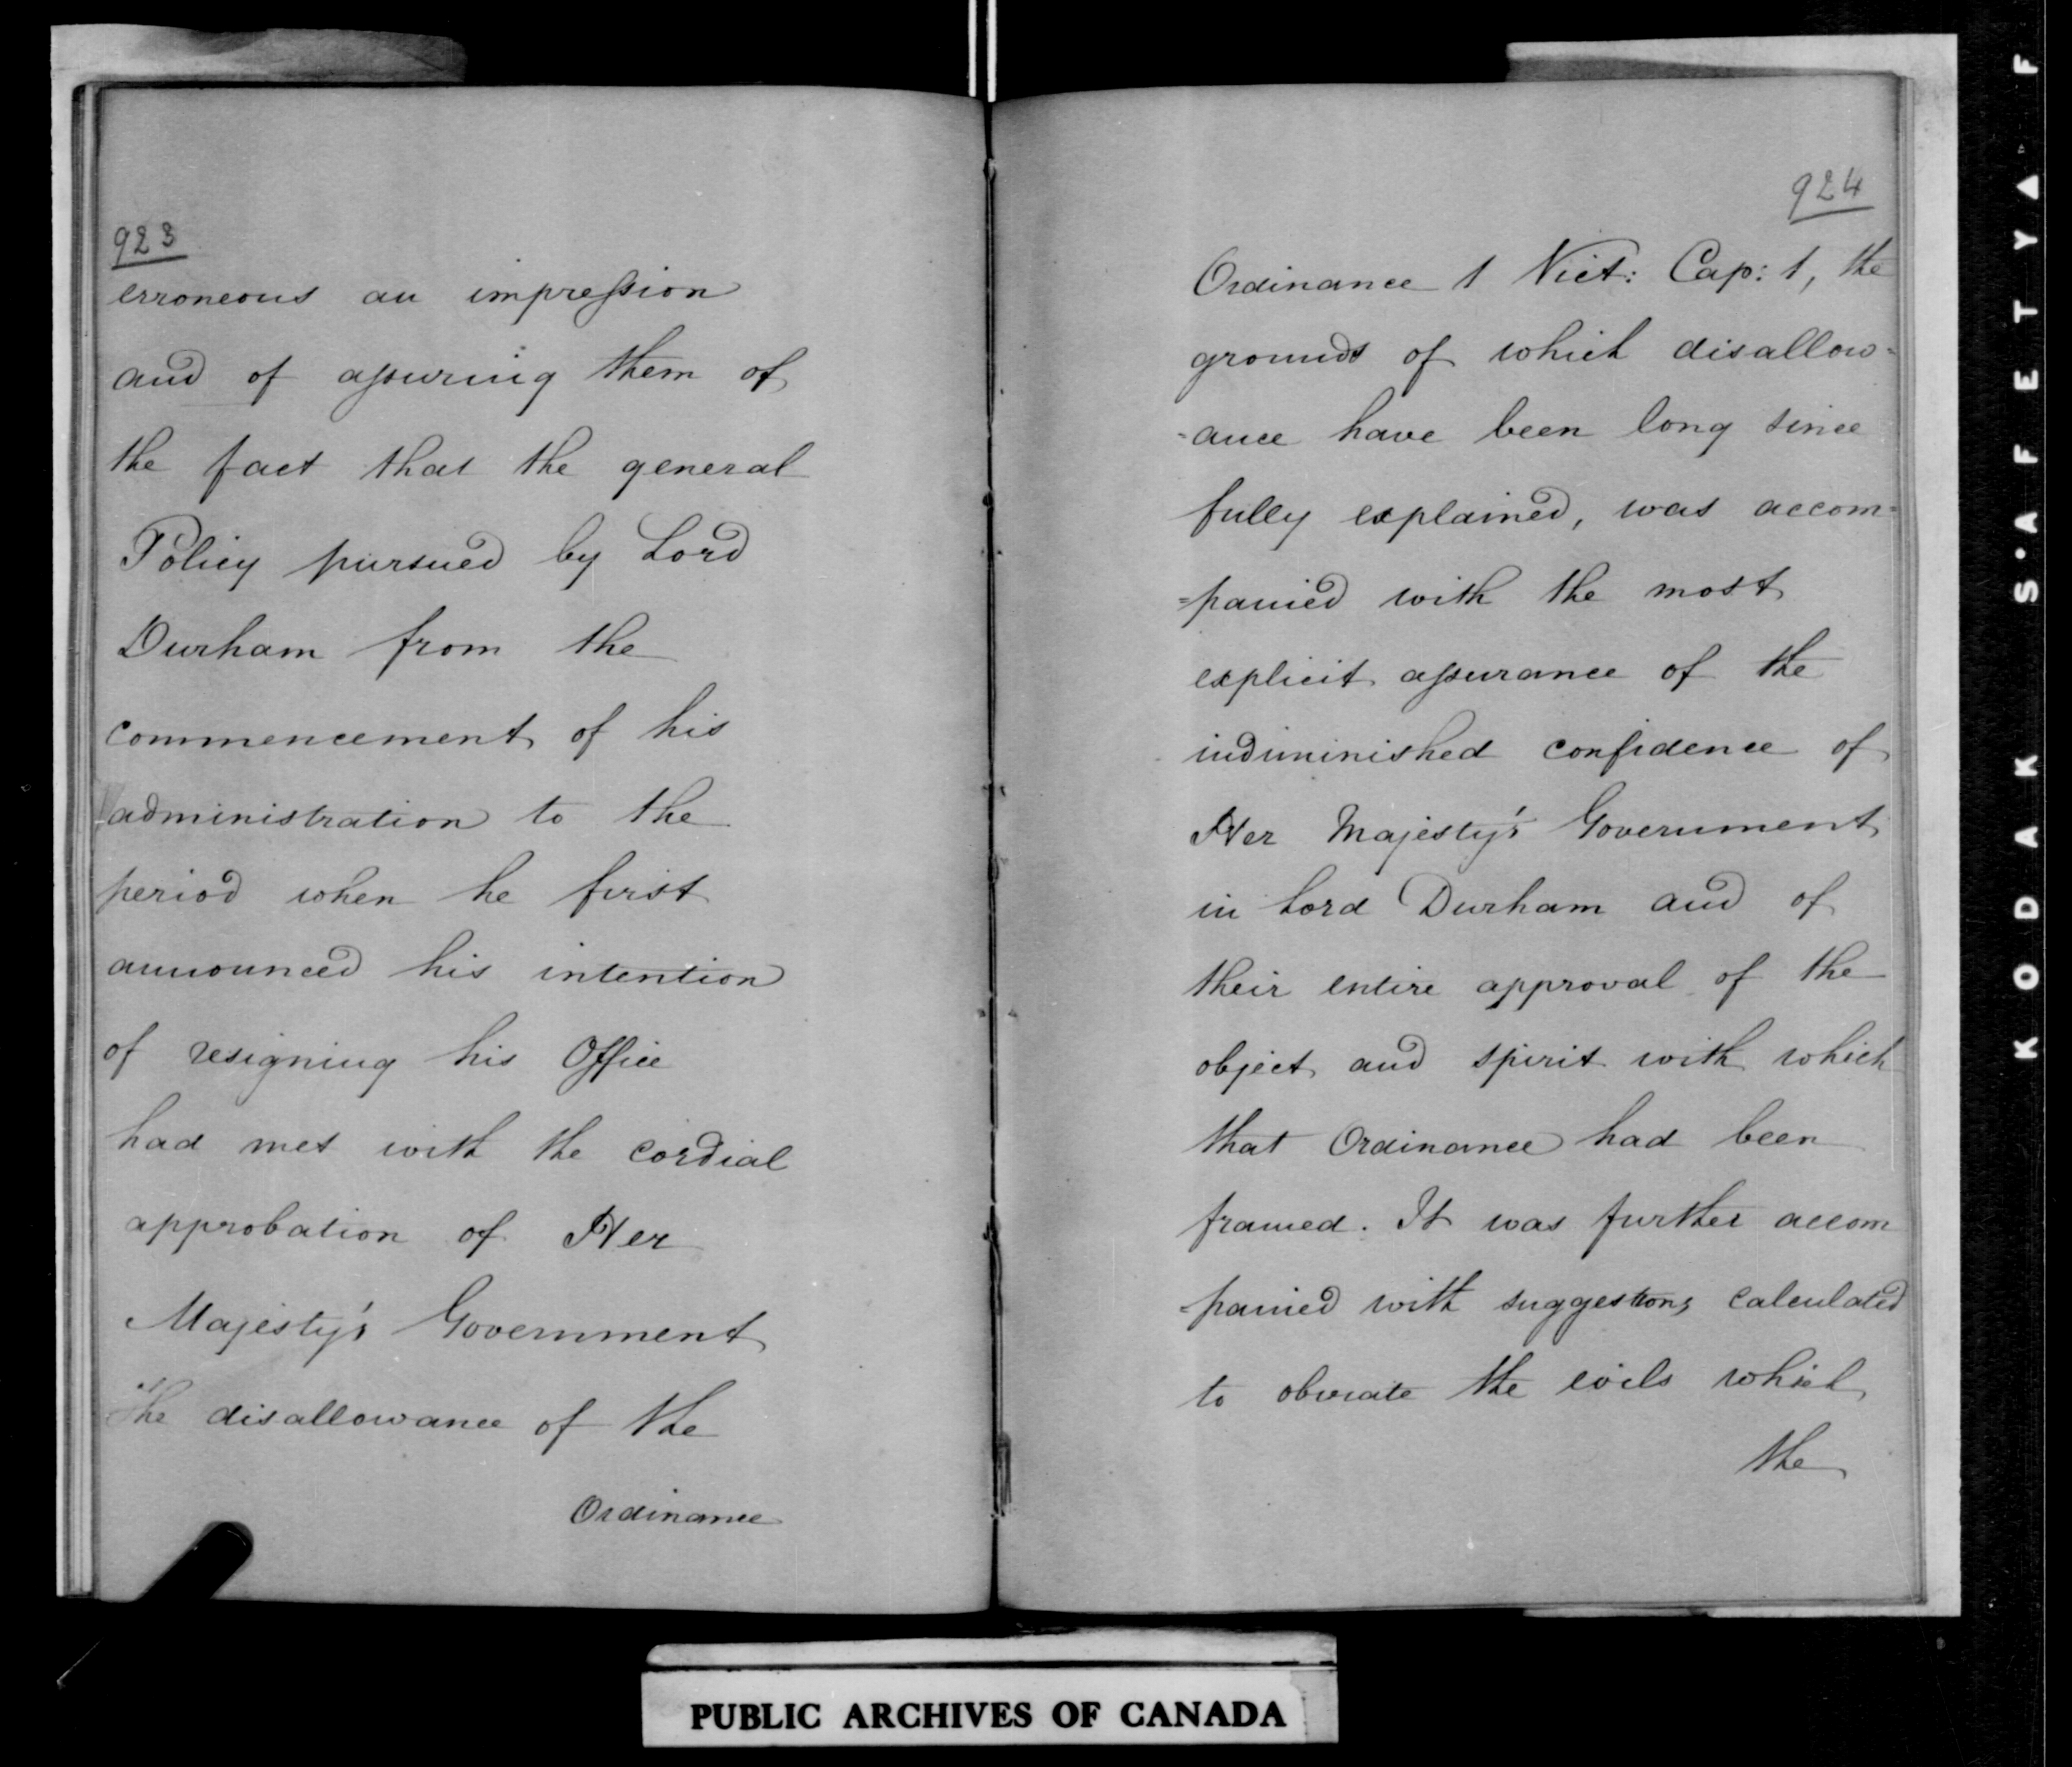 923
erroneous an impression
and of assuring them of
the fact that the general
Policy pursued by Lord
Durham from the
commencement of his
administration to the
period when he first
announced his intention
of resigning his Office
had met with the cordial
approbation of Her
Majesty's Government
The disallowance of the
Ordinance
924
Ordinance 1 Vict: Cap: 1, the
grounds of which disallow-
-ance have been long since
fully explained, was accom=
=panied with the most
explicit assurance of the
undiminished confidence of
Her Majesty's Government
in Lord Durham and of
their entire approval of the
object and spirit with which
that Ordinance had been
framed. It was further accom
=panied with suggestions calculated
to obviate the evils which
the
PUBLIC ARCHIVES OF CANADA
KODAK S'AFETY F